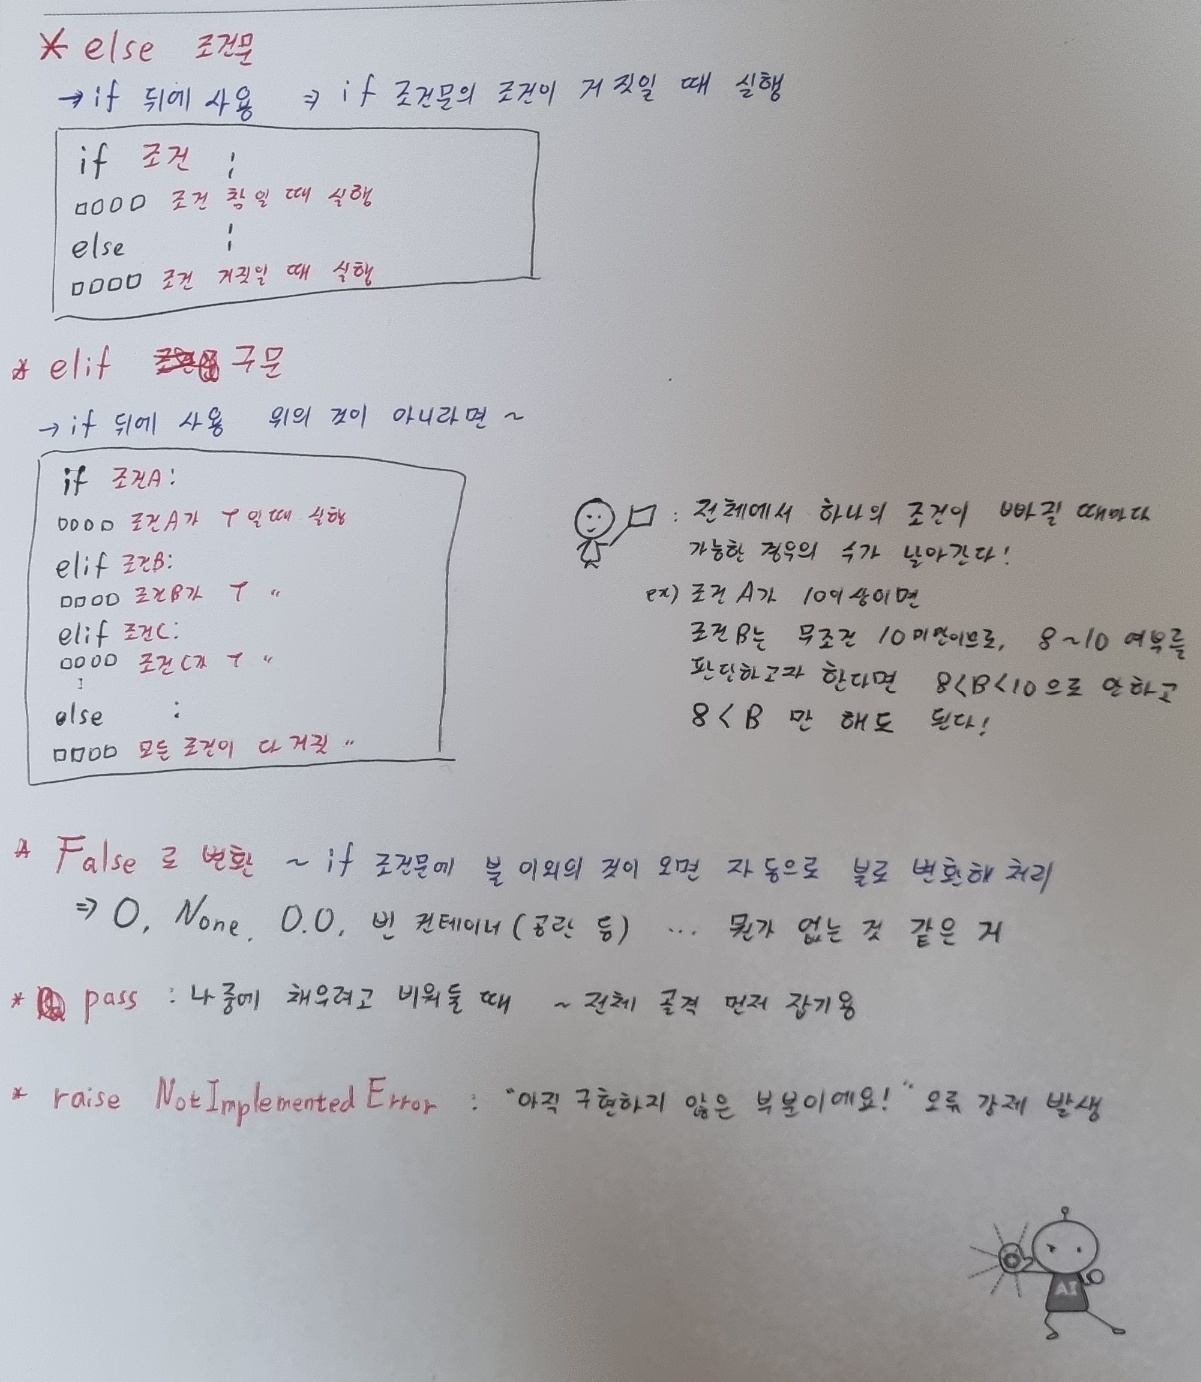 * else 조건문
→ if 뒤에 사용 ⇒ if 조건문의 조건이 거짓일 때 실행
if 조건 :
□□□□ 조건 참일 때 실행
else :
□□□□ 조건 거짓일 때 실행
* elif 구문
→ if 뒤에 사용 위의 것이 아니라면 ~
if 조건A:
□□□□ 조건A가 T일때 실행
elif 조건B:
□□□□ 조건B가 T "
elif 조건C:
□□□□ 조건C가 T "
⋮
else :
□□□□ 모든 조건이 다 거짓 "
: 전체에서 하나의 조건이 빠질 때마다
가능한 경우의 수가 날아간다!
ex) 조건 A가 10이상이면
조건 B는 무조건 10미만이므로, 8~10 여부를
판단하고자 한다면 8<B<10으로 안하고
8<B 만 해도 된다!
* False로 변환 ~ if 조건문에 불 이외의 것이 오면 자동으로 불로 변환해 처리
⇒ 0, None, 0.0, 빈 컨테이너(공란 등) ... 뭔가 없는 것 같은 거
* pass : 나중에 채우려고 비워둘 때 ~ 전체 골격 먼저 잡기용
* raise NotImplemented Error : "아직 구현하지 않은 부분이에요!" 오류 강제 발생
AI